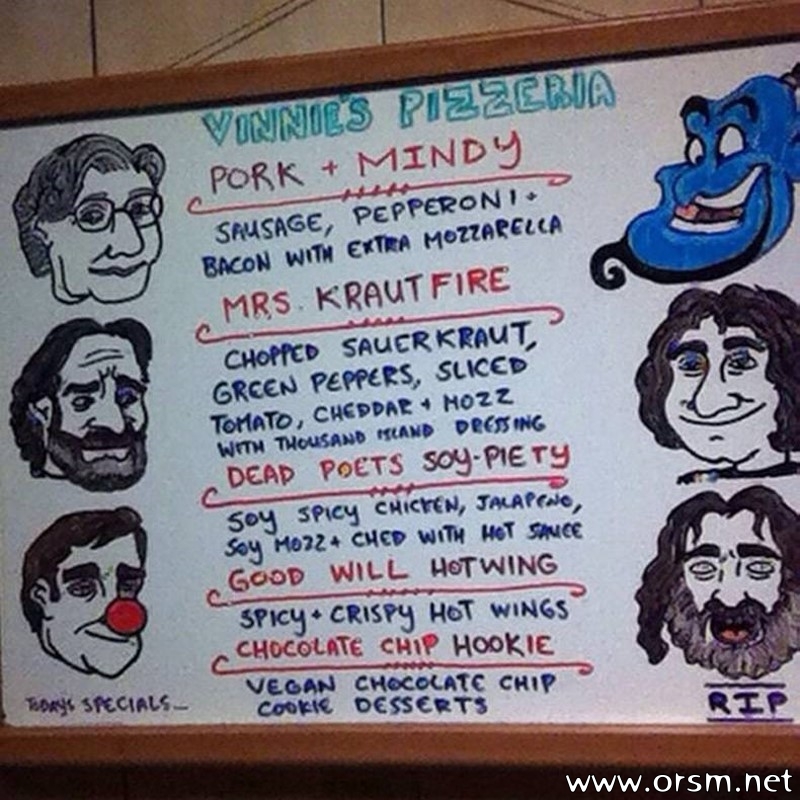 VINNIE'S PIZZERIA
PORK + MINDY
SAUSAGE, PEPPERONI +
BACON WITH EXTRA MOZZARELLA
MRS. KRAUTFIRE
CHOPPED SAUERKRAUT,
GREEN PEPPERS, SLICED
TOMATO, CHEDDAR + MOZZ
WITH THOUSAND ISLAND DRESSING
DEAD POETS SOY-PIETY
SOY SPICY CHICKEN, JALAPENO,
SOY MOZZ + CHED WITH HOT SAUCE
GOOD WILL HOTWING
SPICY + CRISPY HOT WINGS
CHOCOLATE CHIP HOOKIE
VEGAN CHOCOLATE CHIP
COOKIE DESSERTS
TODAYS SPECIALS...
RIP
www.orsm.net